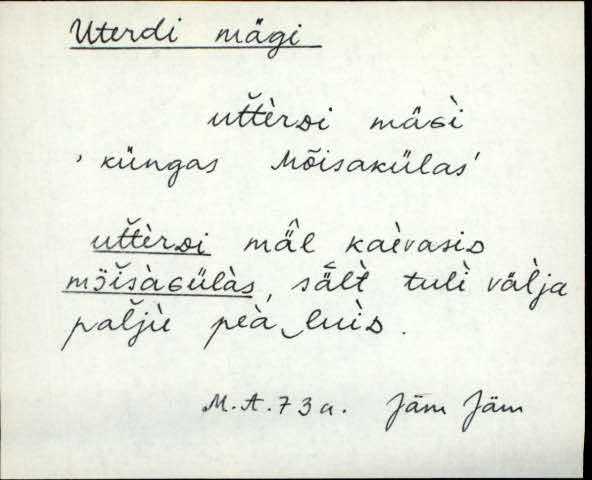 Uterdi mägi
ut̆t̆èrᴅi mäɢì
' küngas Mõisakülas'
ut̆t̆èrᴅi mä̆l kaèvasiᴅ
mɔ̈ĭsàɢülàs, sä̆lt̀ tulì vä̆l̀ja
pal̆jù peà luìᴅ.
M.A. 73 a. Jäm Jäm